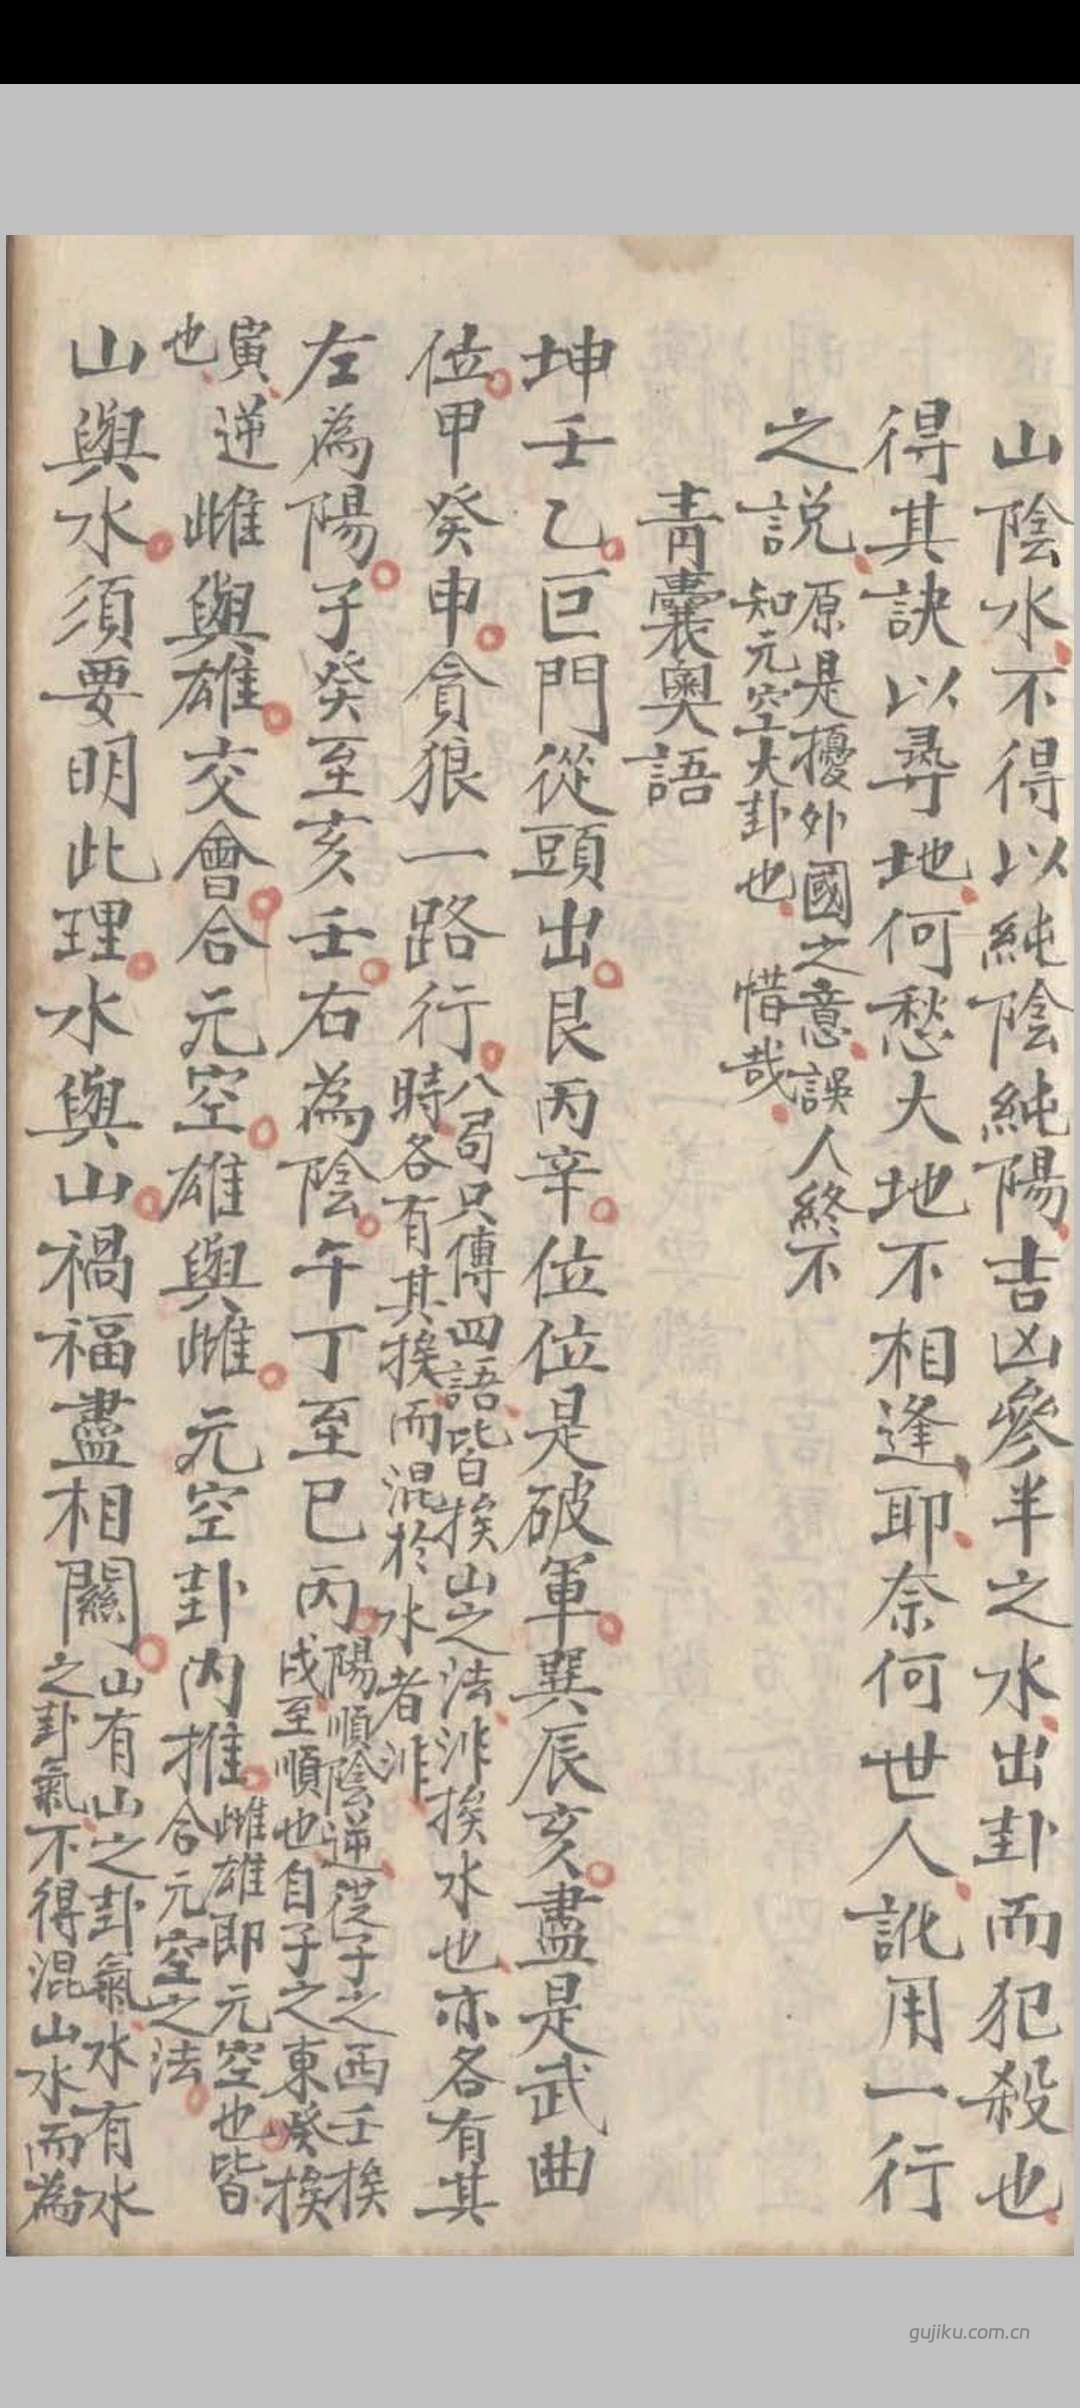 山陰水不得以純陰純陽吉凶參半之水出卦而犯殺也
得其訣以尋地何愁大地不相逢耶奈何世人訛用一行
之說
原是擾外國之意誤人終不
知元空大卦也惜哉
青囊奧語
坤壬乙巨門從頭出艮丙辛位位是破軍巽辰亥盡是武曲
位甲癸申貪狼一路行
八局只傳四語皆挨山之法非挨水也亦各有其
時各有其挨而混於水者非
左為陽子癸至亥壬右為陰午丁至巳丙
陽順陰逆從子之西壬挨
戌至順也自子之東癸挨
寅逆
也
雌與雄交會合元空雄與雌元空卦內推
雌雄即元空也皆
合元空之法
山與水須要明此理水與山禍福盡相關
山有山之卦氣水有水
之卦氣不得混山水而為
gujiku.com.cn